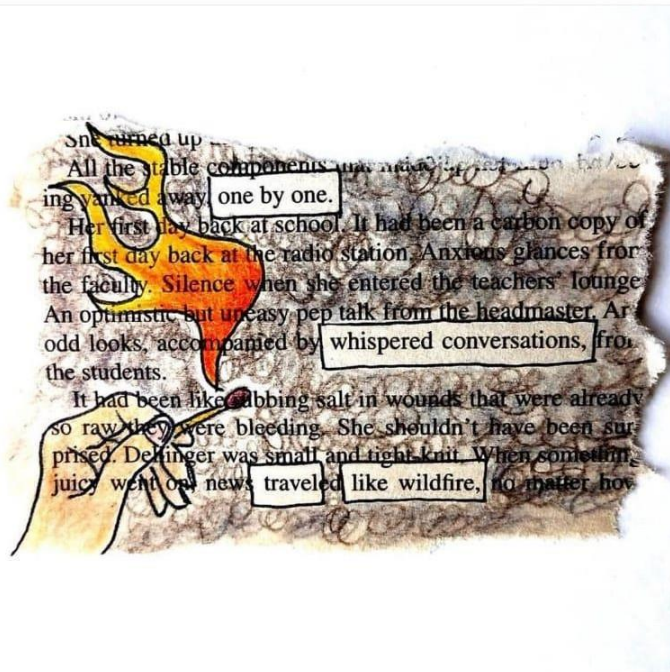 She turned up
All the stable components
ing yanked away, one by one.
Her first day back at school. It had been a carbon copy of
her first day back at the radio station. Anxious glances from
the faculty. Silence when she entered the teachers' lounge
An optimistic but uneasy pep talk from the headmaster. Ar
odd looks, accompanied by whispered conversations, fro
the students.
It had been like rubbing salt in wounds that were already
so raw they were bleeding. She shouldn't have been sur
prised. Dehinger was small and tight-knit. When something
juicy went on, news traveled like wildfire, no matter how